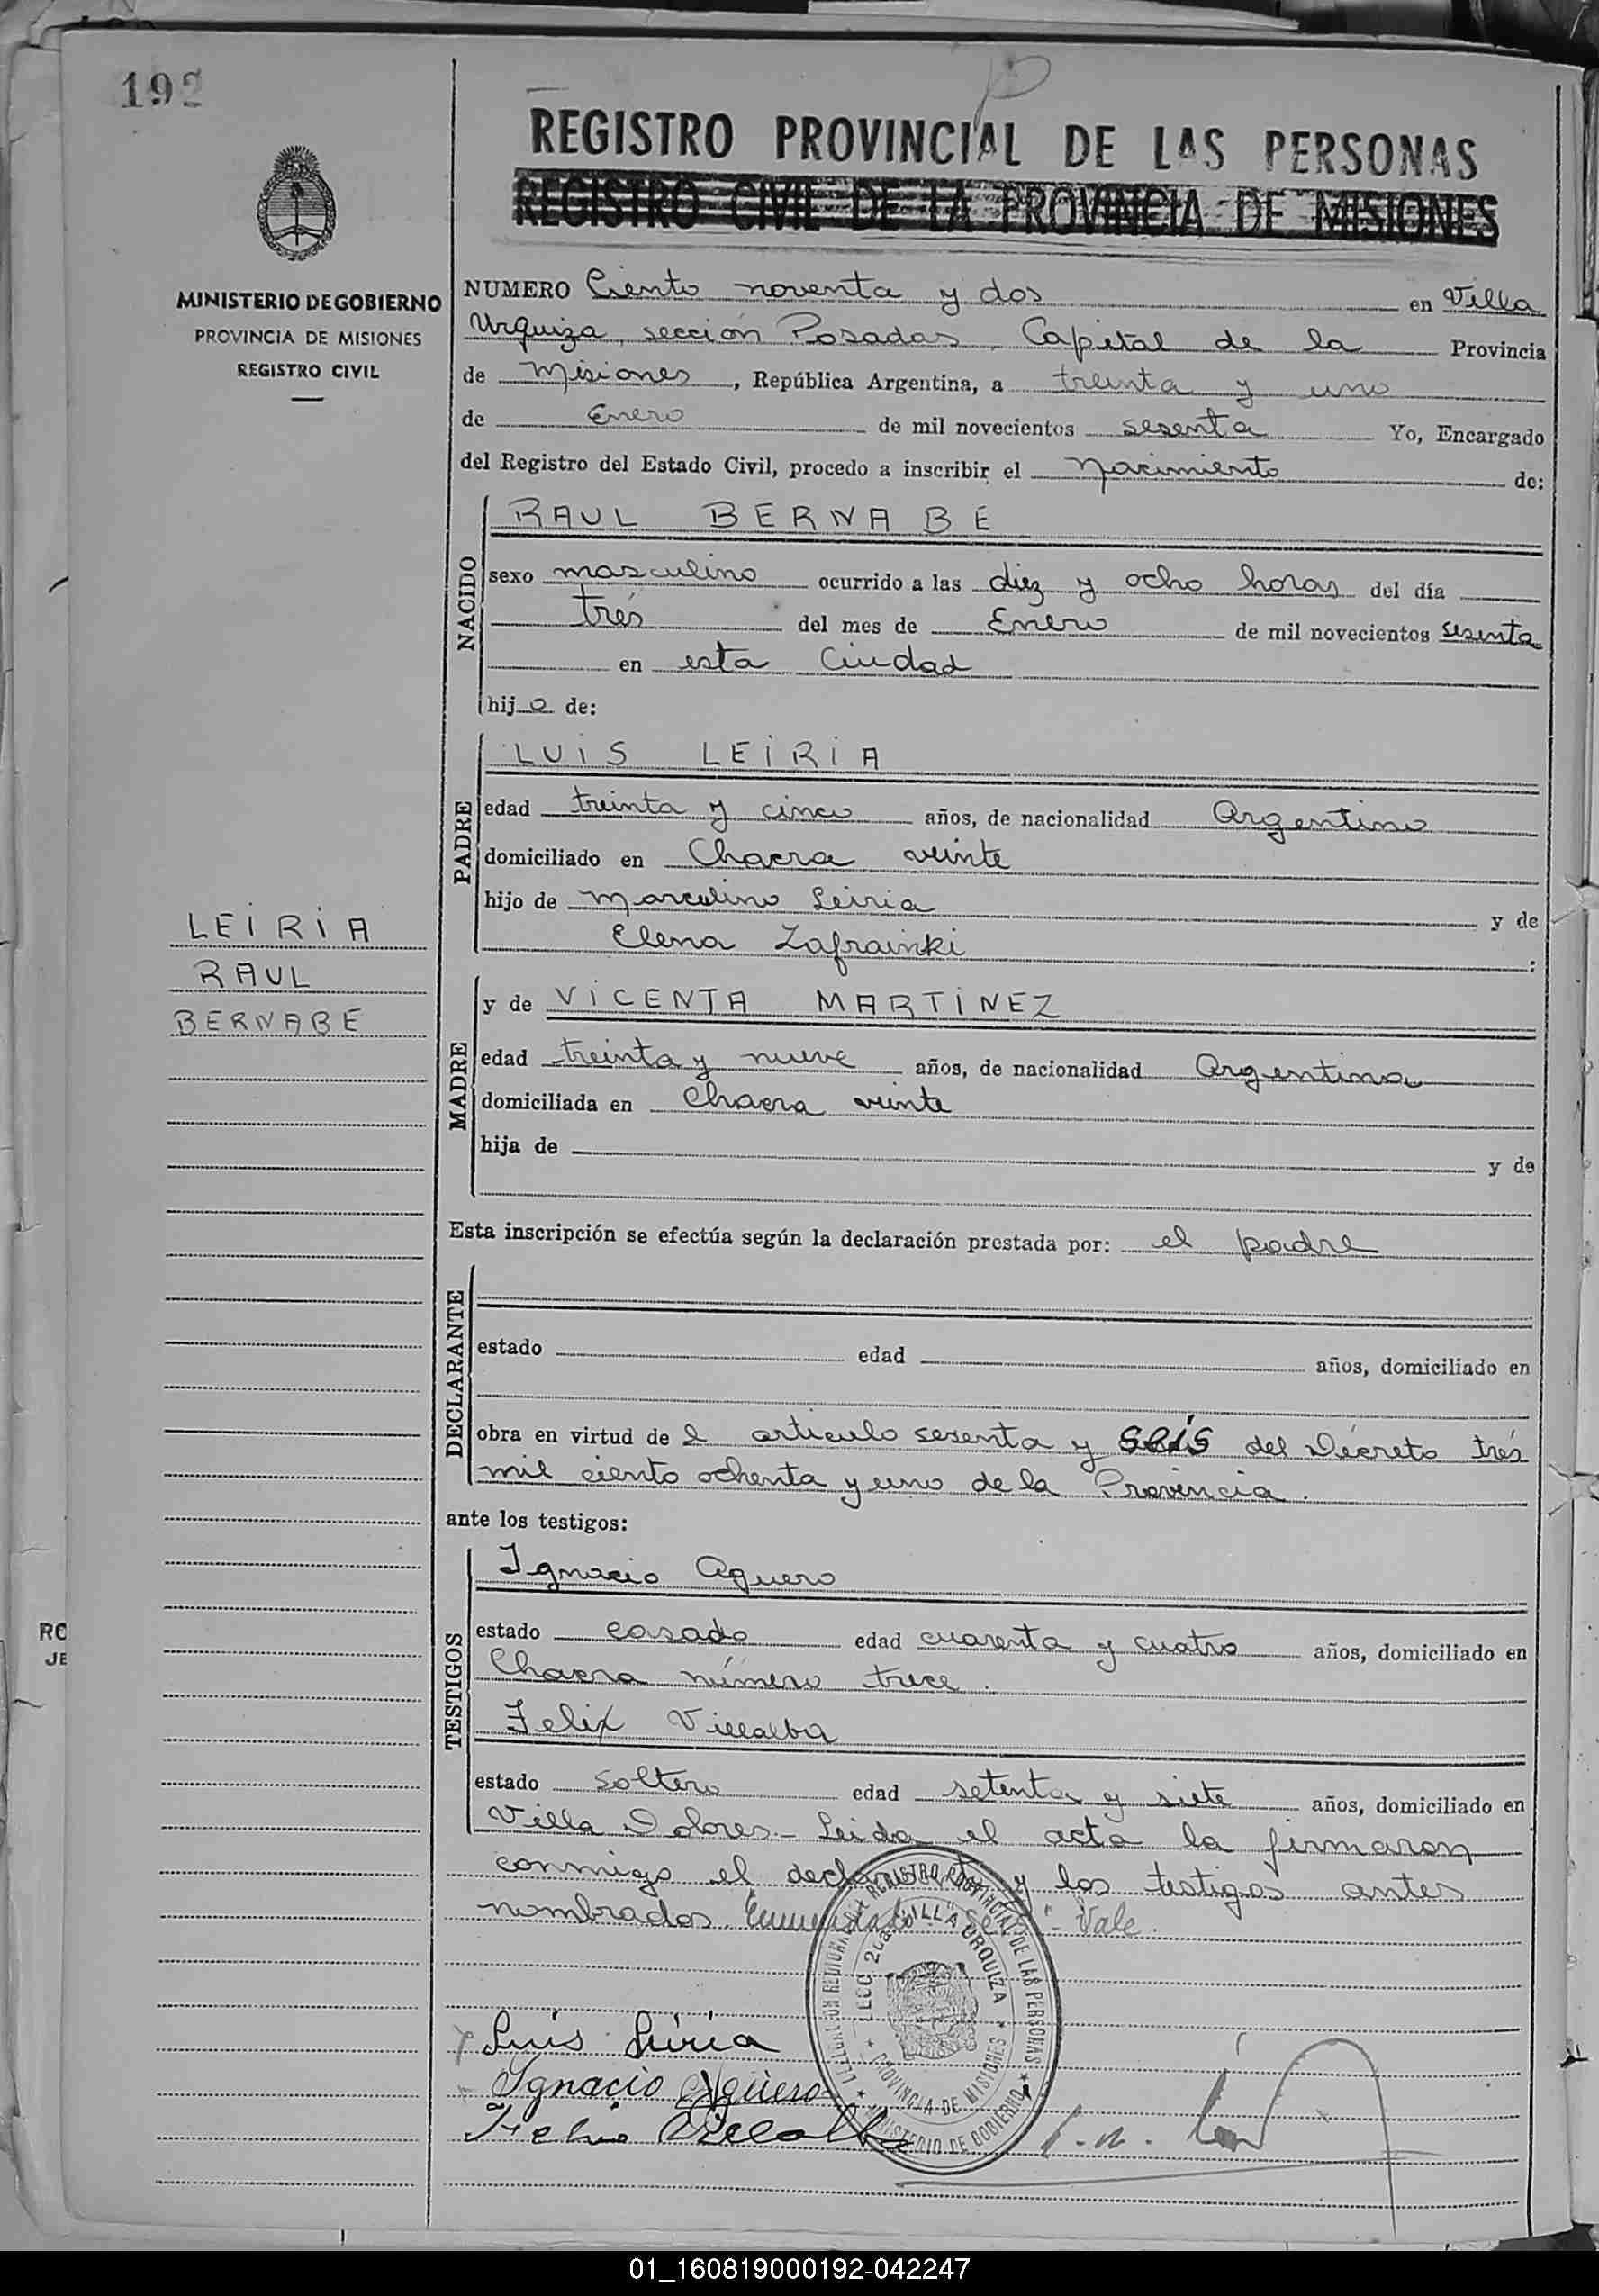 192
REGISTRO PROVINCIAL DE LAS PERSONAS
REGISTRO CIVIL DE LA PROVINCIA DE MISIONES
MINISTERIO DE GOBIERNO
PROVINCIA DE MISIONES
REGISTRO CIVIL
NUMERO Ciento noventa y dos en Villa
Urquiza, sección Posadas, Capital de la Provincia
de Misiones, República Argentina, a treinta y uno
de Enero de mil novecientos sesenta Yo, Encargado
del Registro del Estado Civil, procedo a inscribir el Nacimiento de:
NACIDO
RAUL BERNABE
sexo masculino ocurrido a las diez y ocho horas del día
tres del mes de Enero de mil novecientos sesenta
en esta Ciudad
hijo de:
PADRE
LUIS LEIRIA
edad treinta y cinco años, de nacionalidad Argentino
domiciliado en Chacra veinte
hijo de Marculino Leiria y de
Elena Zafrainki :
LEIRIA
RAUL
BERNABE
MADRE
y de VICENTA MARTINEZ
edad treinta y nueve años, de nacionalidad Argentina
domiciliada en Chacra veinte
hija de y de
Esta inscripción se efectúa según la declaración prestada por: el padre
DECLARANTE
estado edad años, domiciliado en
obra en virtud de l articulo sesenta y seis del Decreto tres
mil ciento ochenta y uno de la Provincia.
ante los testigos:
TESTIGOS
Ignacio Aguero
estado casado edad cuarenta y cuatro años, domiciliado en
Chacra número trece.
Felix Villalba
estado soltero edad setenta y siete años, domiciliado en
Villa Dolores.- Leida el acta la firmaron
conmigo el declarante y los testigos antes
nombrados. Enmendado "seis" - Vale.
REGISTRO PROVINCIAL DE LAS PERSONAS
VILLA URQUIZA
PROVINCIA DE MISIONES
MINISTERIO DE GOBIERNO
Luis Leiria
Ignacio Agüero
Felix Villalba
RO
JE
01_160819000192-042247